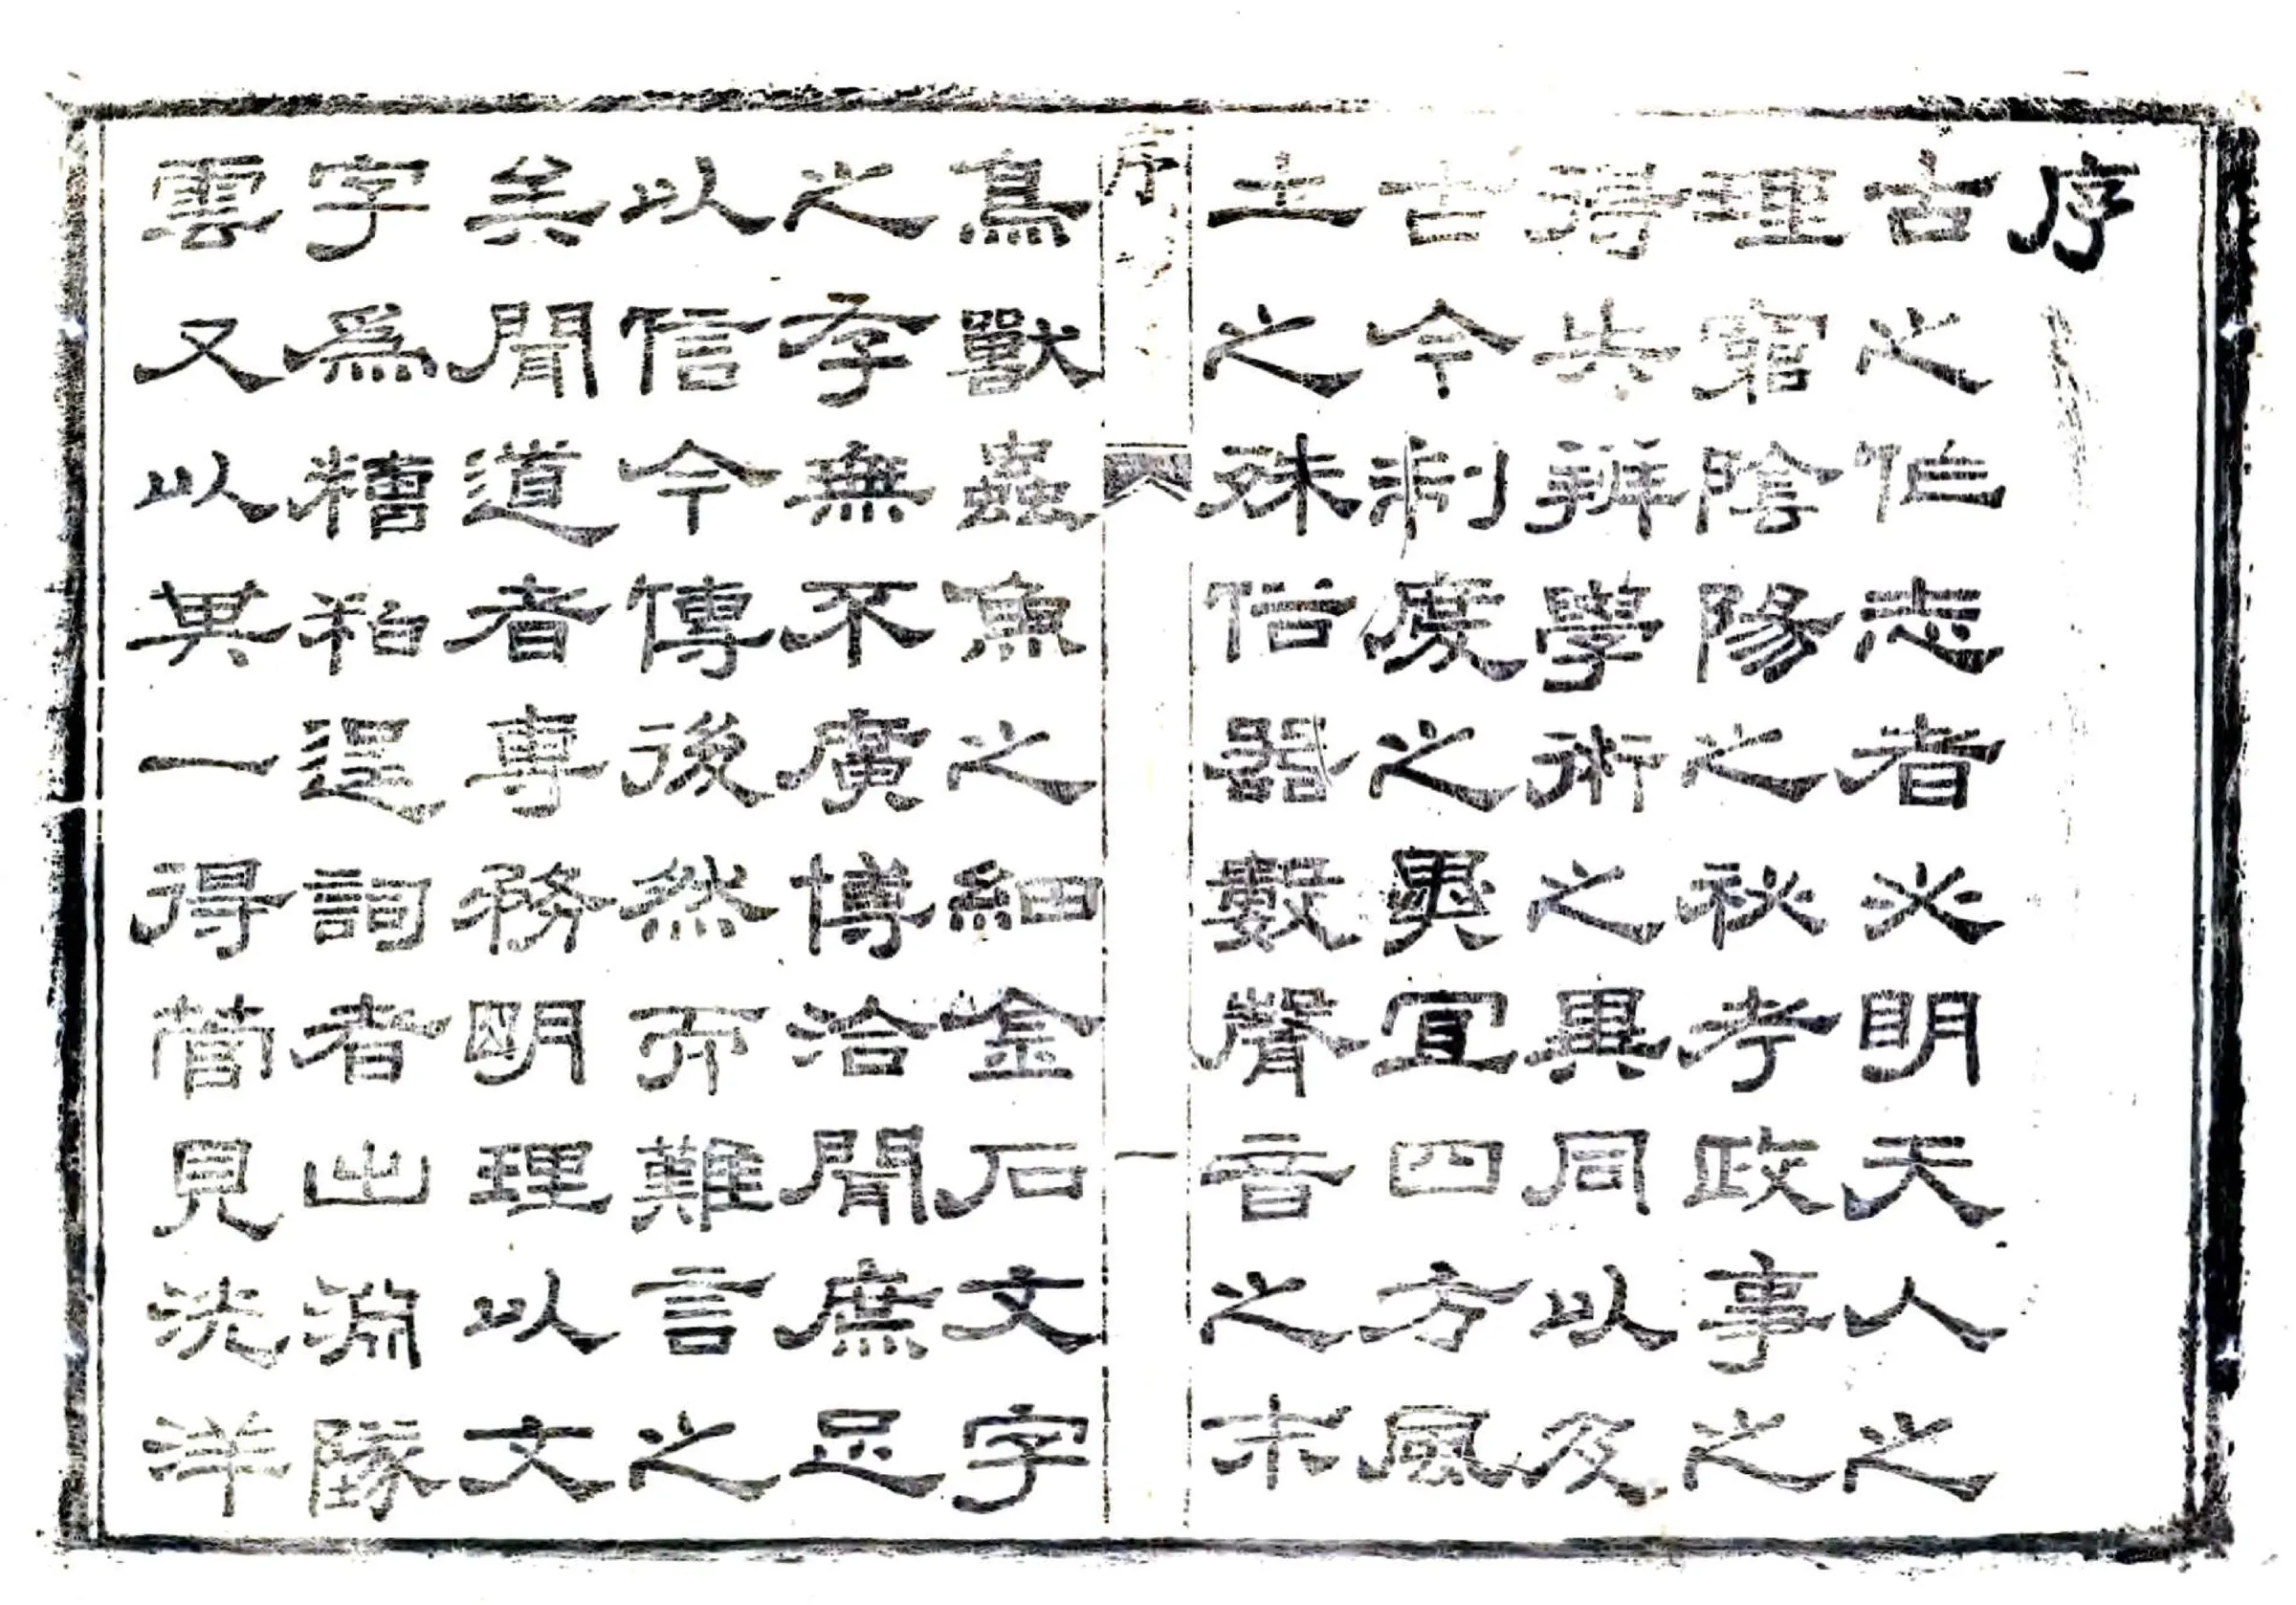 序
古之作志者必明天人之
理窮陰陽之秘考政事之
得失辨學術之異同以及
古今制度之異宜四方風
土之殊俗器數聲音之末
序
一
鳥獸蟲魚之細金石文字
之存無不廣博洽聞庶足
以信今傳後然而難言之
矣聞道者專務明理以文
字爲糟粕逞詞者出淵墜
雲又以其一得管見洸洋